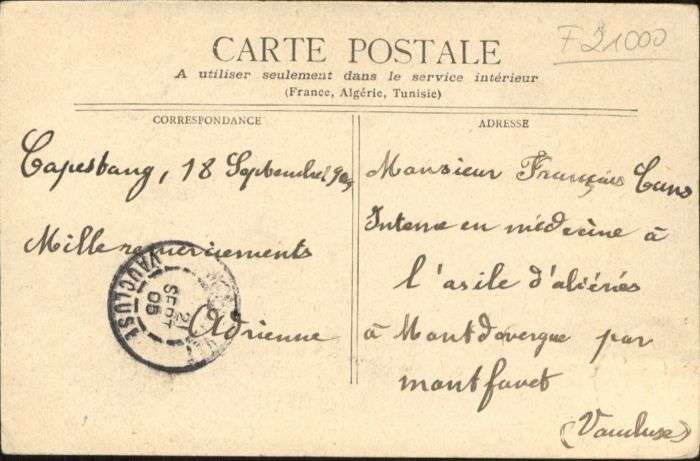 F 21000
CARTE POSTALE
A utiliser seulement dans le service intérieur
(France, Algérie, Tunisie)
CORRESPONDANCE
Capestang, 18 Septembre 905
Mille remerciements
Adrienne
VAUCLUSE
21
SEPT
05
ADRESSE
Monsieur François Cans
Interne en médecine à
l'asile d'aliénés
à Montdevergue par
montfavet
(Vaucluse)